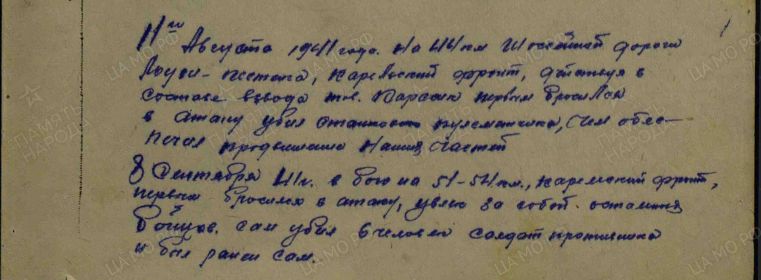 11го Августа 1941 года. На 44 км Шоссейной дороги
Лоухи-Кестенга, Карельский фронт, действуя в
составе взвода тов. первым бросился
в атаку убил станкового пулеметчика, чем обес-
печил продвижение Наших частей
8 Сентября 41г. в бою на 51-54 км., Карельский фронт,
первым бросился в атаку, увлек за собой остальных
Бойцов. Сам убил 6 человек солдат противника
и был ранен сам.